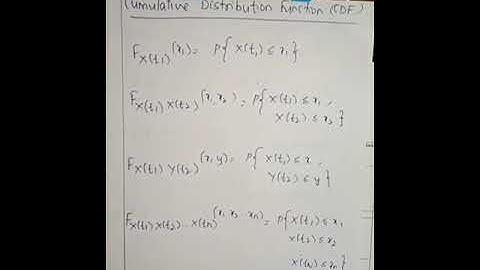 Cumulative Distribution Function (CDF)
F_X(t₁)^(x₁) = P{ X(t₁) ≤ x₁}
F_X(t₁) X(t₂)^(x₁, x₂) = P{ X(t₁) ≤ x₁,
X(t₂) ≤ x₂ }
F_X(t₁) Y(t₂)^(x, y) = P{ X(t₁) ≤ x,
Y(t₂) ≤ y }
F_X(t₁) X(t₂) ... X(tn)^(x₁, x₂ ... xn) = P{ X(t₁) ≤ x₁
X(t₂) ≤ x₂
X(tn) ≤ xn }